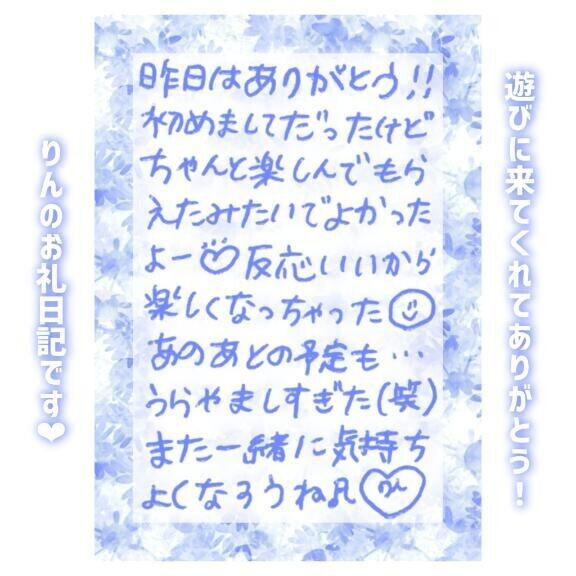 遊びに来てくれてありがとう！
昨日はありがとう!!
初めましてだったけど
ちゃんと楽しんでもら
えたみたいでよかった
よー♡反応いいから
楽しくなっちゃった☺
あのあとの予定も…
うらやましすぎた(笑)
また一緒に気持ち
よくなろうね♬
りん
りんのお礼日記です❤